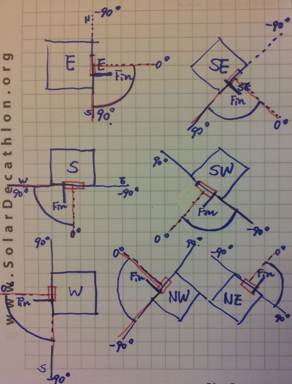 www.SolarDecathlon.org
N
-90°
E
E
0°
Fin
S
90°
-90°
SE
SE
Fin
90°
0°
S
W
90°
E
-90°
Fin
0°
90°
SW
Fin
0°
-90°
90°
W
0°
Fin
-S
-90°
0°
90°
Fin
NW
-90°
-90°
0°
Fin
NE
90°